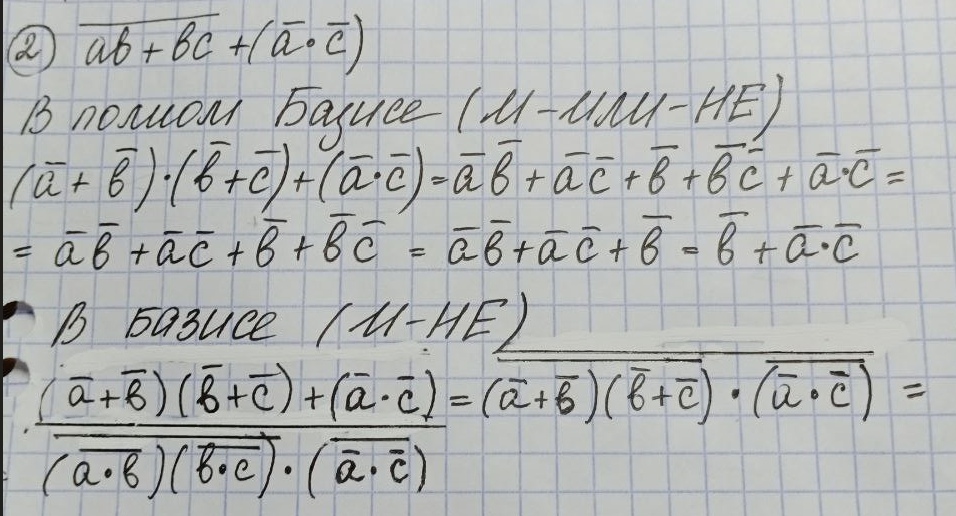 2) \overline{ab + bc} + (a̅·c̅)
В полном Базисе (И-ИЛИ-НЕ)
(a̅ + b̅)·(b̅+c̅)+(a̅·c̅)=a̅b̅+a̅c̅+b̅+b̅c̅+a̅·c̅=
= a̅b̅+a̅c̅+b̅+b̅c̅ = a̅b̅+a̅c̅+b̅ = b̅+a̅·c̅
В базисе (И-НЕ)
(a̅+b̅)(b̅+c̅)+(a̅·c̅)=\overline{\overline{(a̅+b̅)(b̅+c̅)}·\overline{(a̅·c̅)}} =
\overline{\overline{(\overline{a·b})(\overline{b·c})}·(\overline{a̅·c̅})}